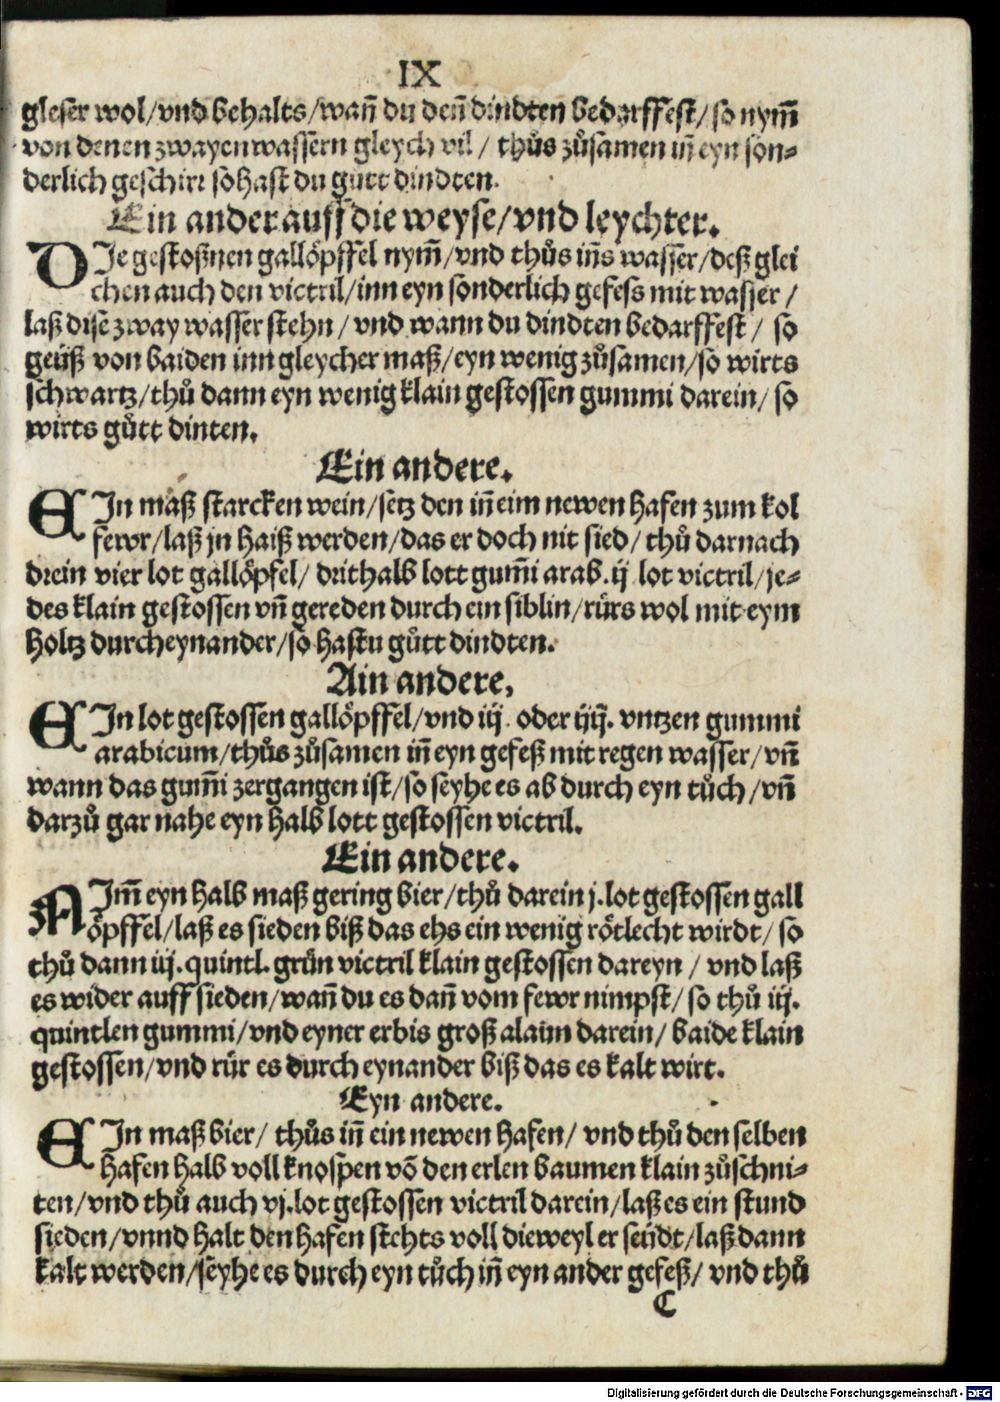 IX
gleser wol/vnd behalts/wañ du deñ dindten bedarffest/so nym̃
von denen zwayen wassern gleych vil/ thůs zůsamen iñ eyn son-
derlich geschirr so hast du gůtt dindten.
Ein ander auff die weyse/vnd leychter.
DJe gestoßnen gallöpffel nym̃/vnd thůs iñs wasser/deß glei
chen auch den victril/inn eyn sonderlich gefess mit wasser/
laß dise zway wasser stehn/vnd wann du dindten bedarffest/ so
geüß von baiden inn gleycher maß/eyn wenig zůsamen/so wirts
schwartz/thů dann eyn wenig klain gestossen gummi darein/ so
wirts gůtt dinten.
Ein andere.
EJn maß starcken wein/setz den iñ eim newen hafen zum kol
fewr/laß jn haiß werden/das er doch nit sied/thů darnach
drein vier lot gallöpfel/ drithalb lott gum̃i arab.ij lot victril/je-
des klain gestossen vñ gereden durch ein siblin/rürs wol mit eym
holtz durcheynander/so hastu gůtt dindten.
Ain andere.
EJn lot gestossen gallöpffel/vnd iij. oder iiij. vntzen gummi
arabicum/thůs zůsamen iñ eyn gefeß mit regen wasser/vñ
wann das gum̃i zergangen ist/so seyhe es ab durch eyn tůch/vñ
darzů gar nahe eyn halb lott gestossen victril.
Ein andere.
NJm̃ eyn halb maß gering bier/thů darein j.lot gestossen gall
öpffel/laß es sieden biß das ehs ein wenig rötlecht wirdt/ so
thů dann iij.quintl. grün victril klain gestossen dareyn/ vnd laß
es wider auff sieden/wañ du es dañ vom fewr nimpst/ so thů iij.
quintlen gummi/vnd eyner erbis groß alaun darein/ baide klain
gestossen/vnd rür es durch eynander biß das es kalt wirt.
Eyn andere.
EJn maß bier/ thůs iñ ein newen hafen/ vnd thů den selben
hafen halb voll knospen võ den erlen baumen klain zůschni-
ten/vnd thů auch vj.lot gestossen victril darein/laß es ein stund
sieden/vnnd halt den hafen stehts voll dieweyl er seüdt/laß dann
kalt werden/seyhe es durch eyn tůch iñ eyn ander gefeß/ vnd thů
C
Digitalisierung gefördert durch die Deutsche Forschungsgemeinschaft - DFG